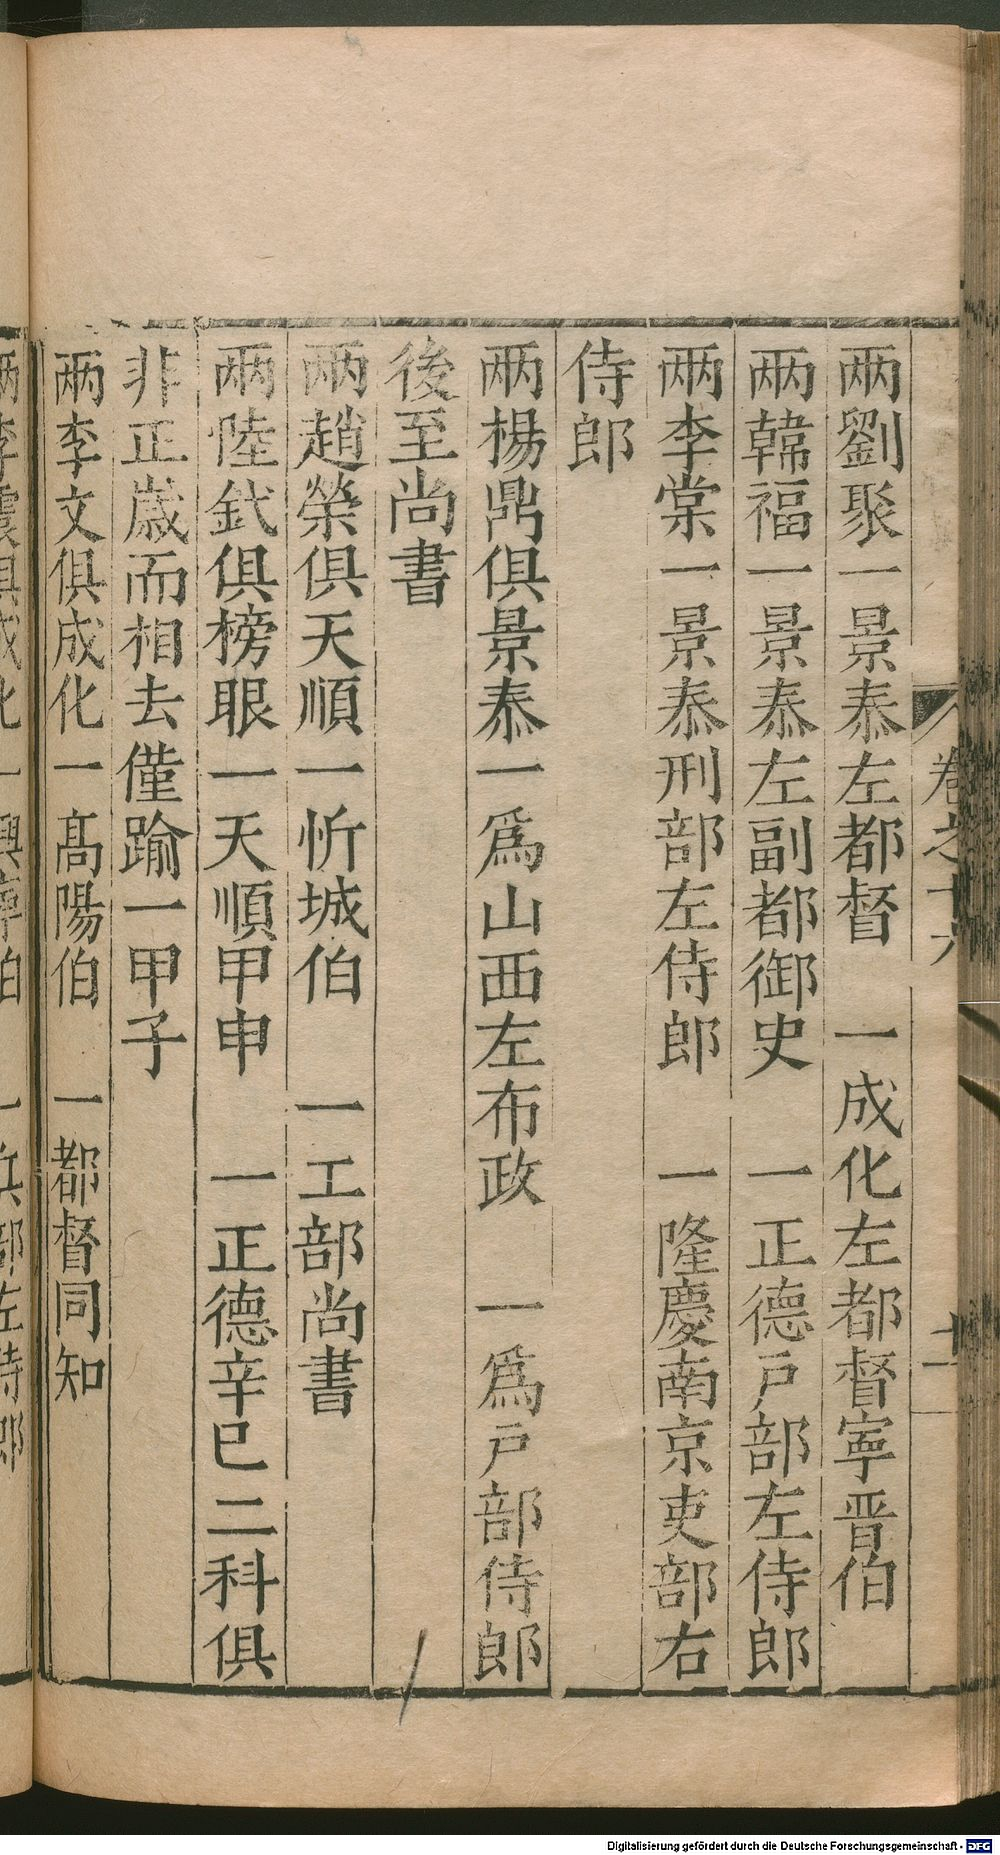 卷之十六
十一
兩劉聚一景泰左都督　一成化左都督寧晋伯
兩韓福一景泰左副都御史　一正德戶部左侍郎
兩李棠一景泰刑部左侍郎　一隆慶南京吏部右
侍郎
兩楊鼎俱景泰一爲山西左布政　一爲戶部侍郎
後至尚書
兩趙榮俱天順一忻城伯　一工部尚書
兩陸釴俱榜眼一天順甲申　一正德辛巳二科俱
非正歲而相去僅踰一甲子
兩李文俱成化一高陽伯　一都督同知
Digitalisierung gefördert durch die Deutsche Forschungsgemeinschaft - DFG